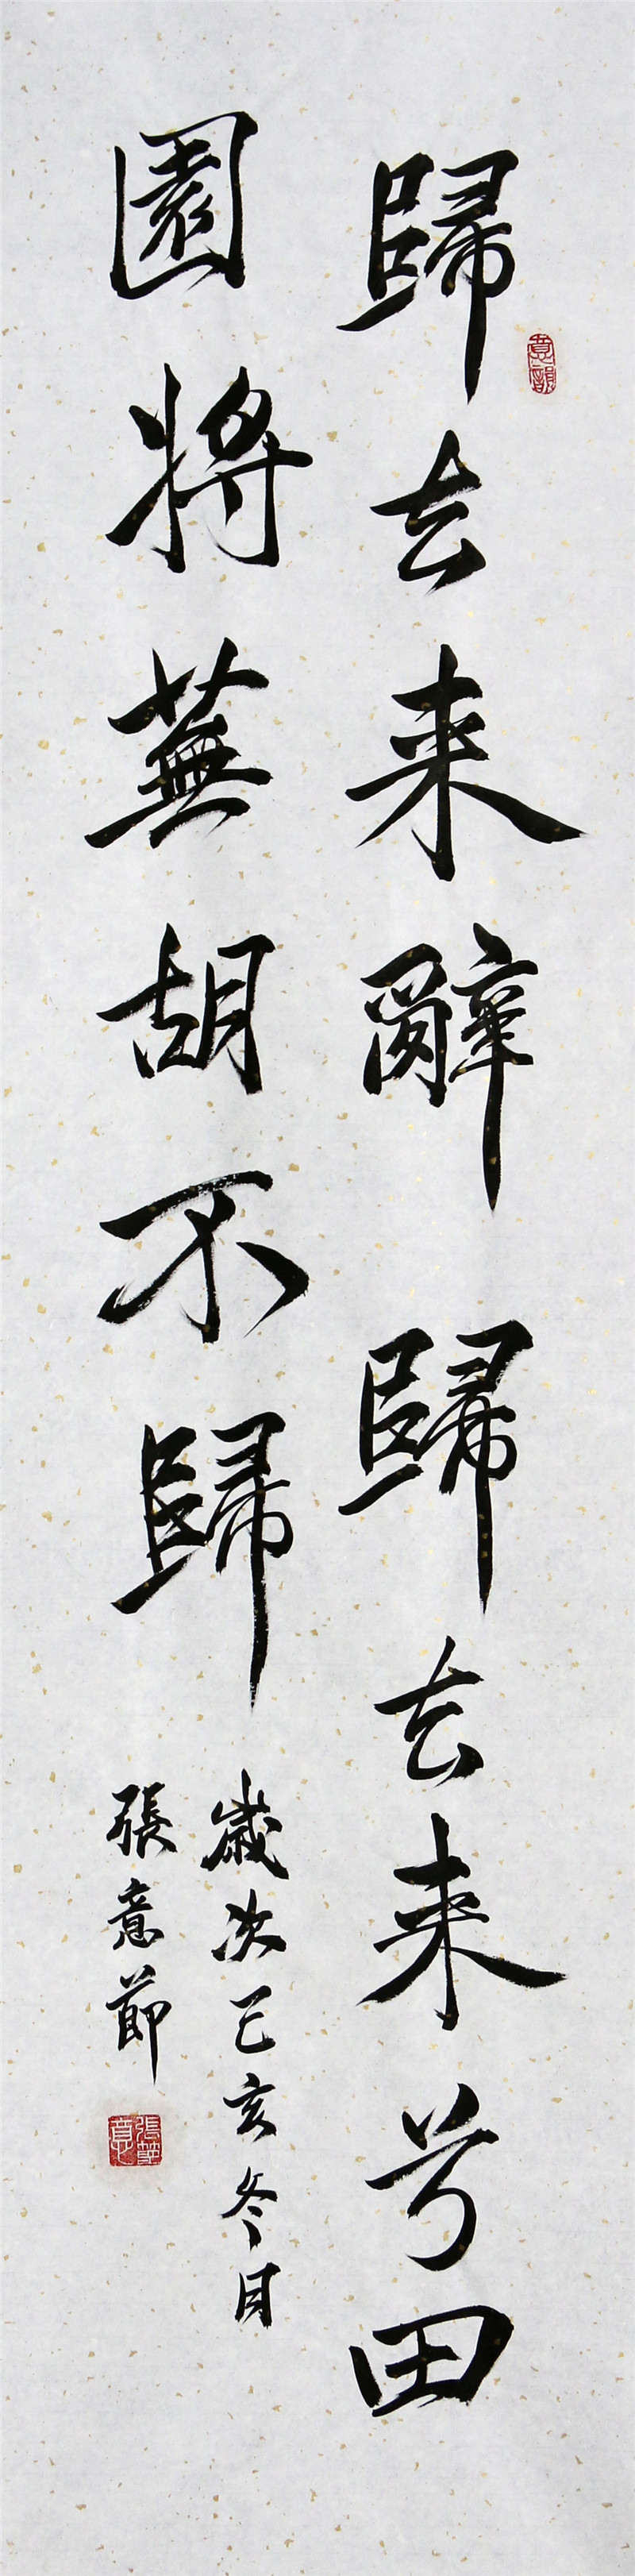 歸去来辭　歸去来兮田
園将蕪胡不歸
歲次己亥冬月
張意節
意韻